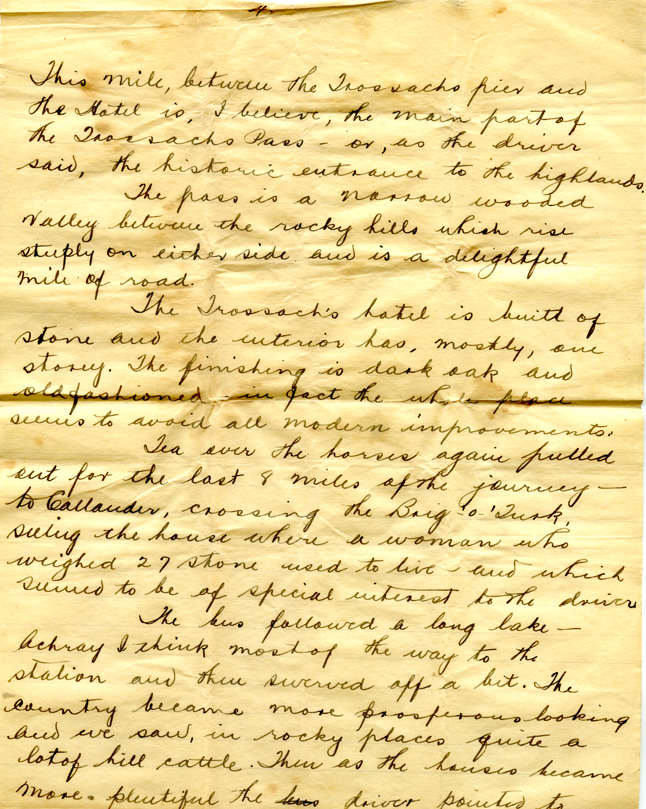 4.
This mile, between the Trossachs pier and
the Hotel is, I believe, the main part of
the Trossachs Pass - or, as the driver
said, the historic entrance to the highlands.
The pass is a narrow wooded
valley between the rocky hills which rise
steeply on either side and is a delightful
mile of road.
The Trossach's hotel is built of
stone and the interior has, mostly, one
storey. The finishing is dark oak and
oldfashioned - in fact the whole place
seems to avoid all modern improvements.
Tea over the horses again pulled
out for the last 8 miles of the journey -
to Callander, crossing the Brig 'o' Turk,
seeing the house where a woman who
weighed 27 stone used to live - and which
seemed to be of special interest to the driver
The bus followed a long lake -
Achray I think most of the way to the
station and then swerved off a bit. The
country became more prosperous looking
and we saw, in rocky places quite a
lot of hill cattle. Then as the houses became
more plentiful the bus driver pointed to